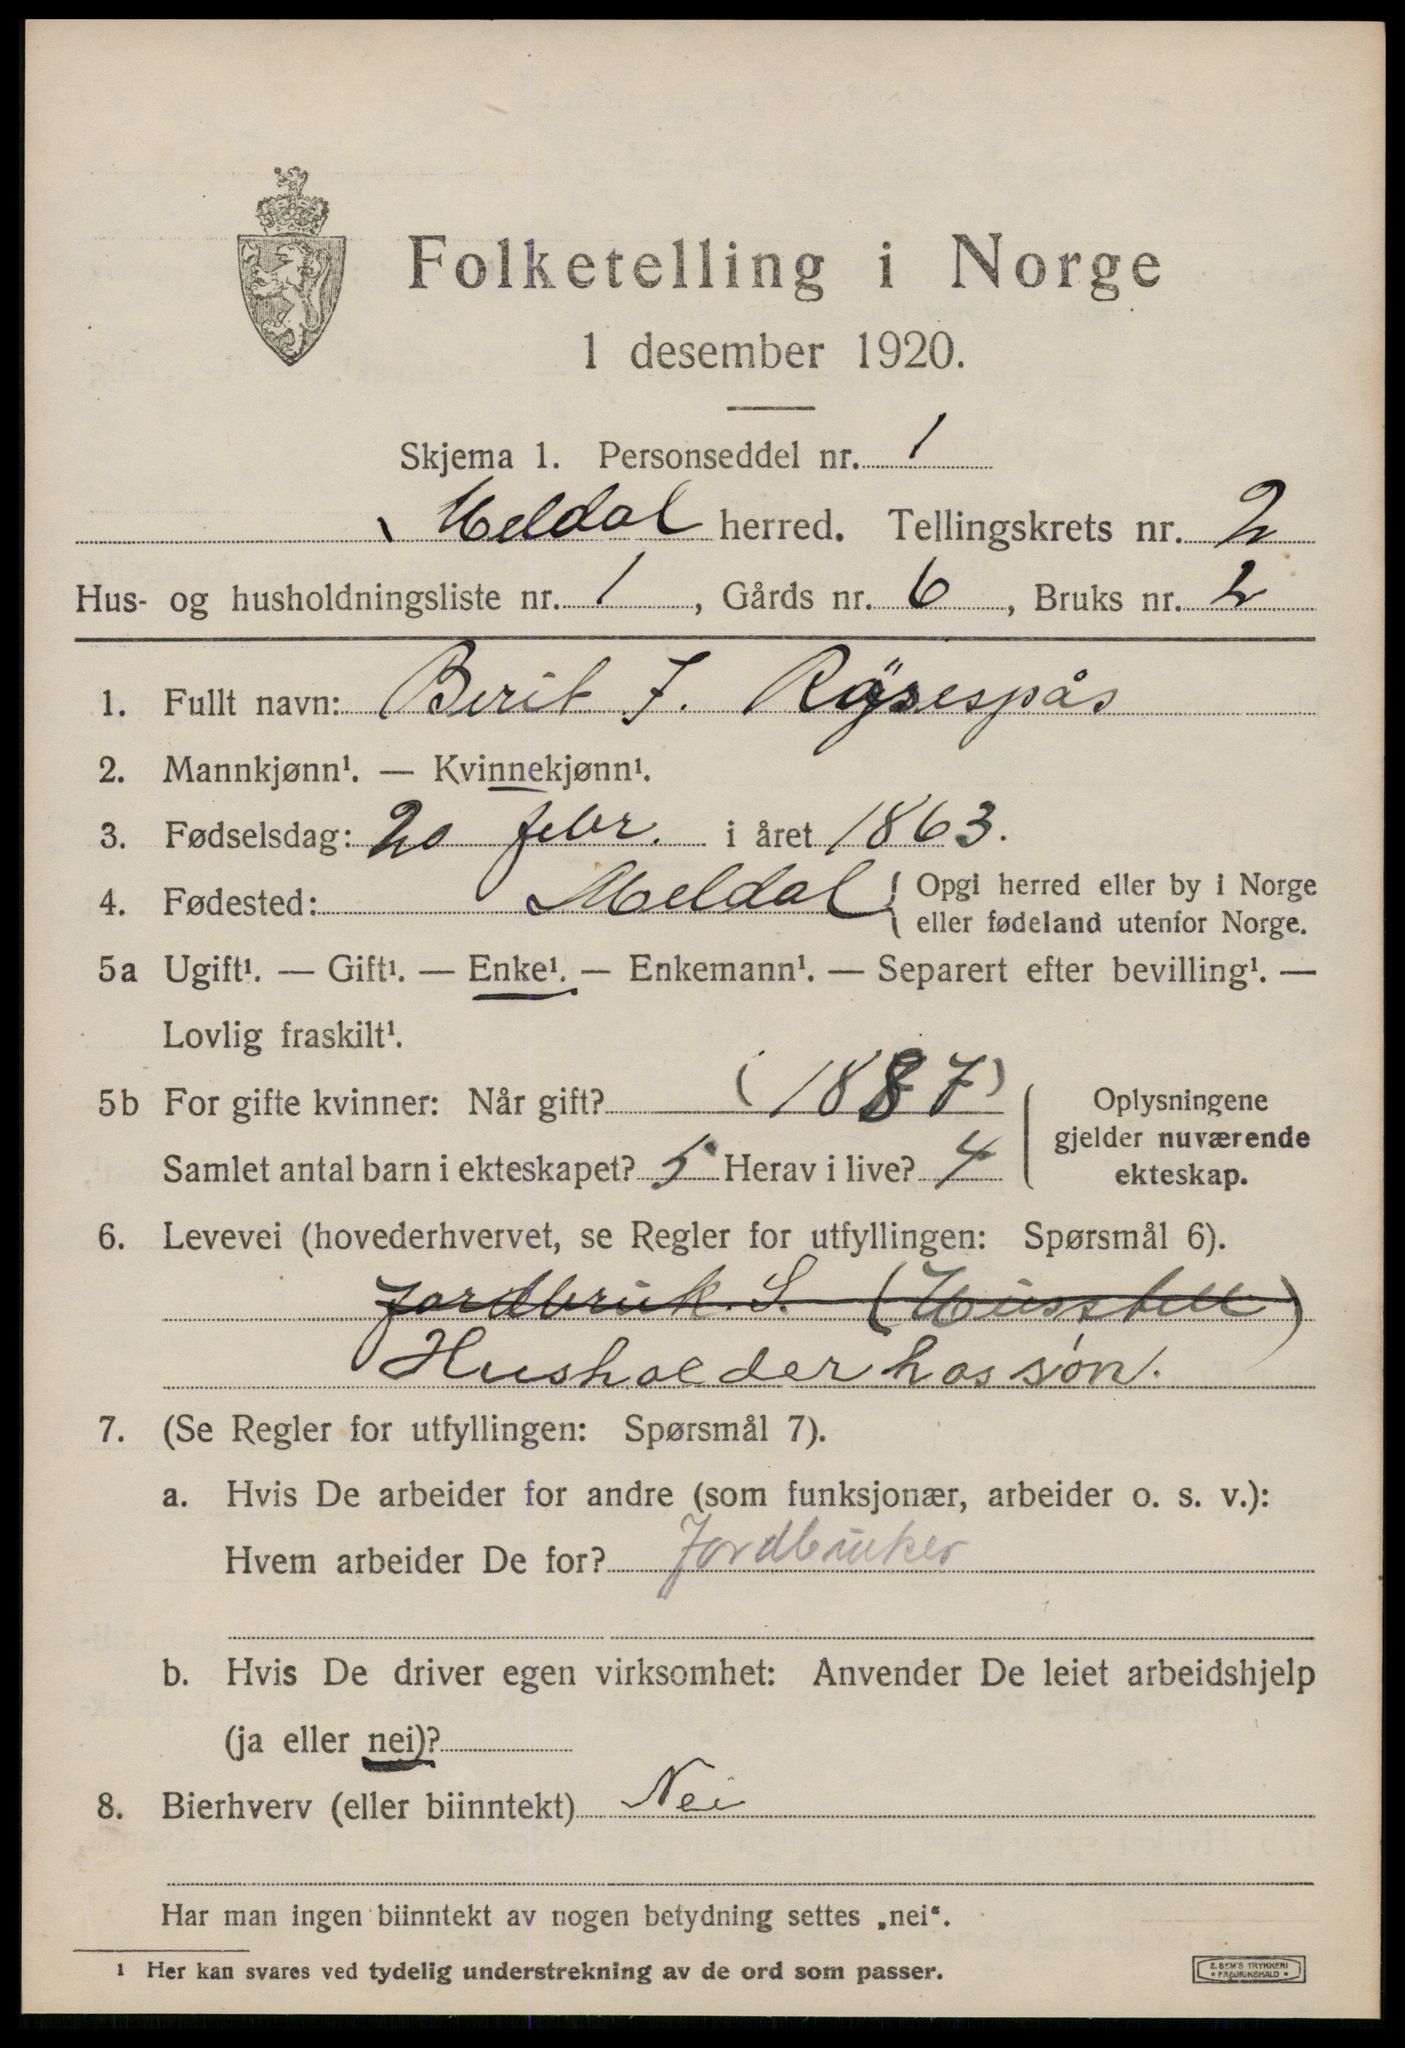 Folketelling i Norge
1 desember 1920.
Skjema 1. Personseddel nr. 1
Meldal herred. Tellingskrets nr. 2
Hus- og husholdningsliste nr. 1, Gårds nr. 6, Bruks nr. 2
1. Fullt navn: Berit J. Röysespås
2. Mannkjønn¹. — Kvinnekjønn¹.
3. Fødselsdag: 20 febr. i året 1863.
4. Fødested: Meldal { Opgi herred eller by i Norge
eller fødeland utenfor Norge.
5a Ugift¹. — Gift¹. — Enke¹. — Enkemann¹. — Separert efter bevilling¹. —
Lovlig fraskilt¹.
5b For gifte kvinner: Når gift? (1887)
Samlet antal barn i ekteskapet? 5 Herav i live? 4
Oplysningene
gjelder nuværende
ekteskap.
6. Levevei (hovederhvervet, se Regler for utfyllingen: Spørsmål 6).
Jordbruk. S. (Husstell)
Husholder hos søn.
7. (Se Regler for utfyllingen: Spørsmål 7).
a. Hvis De arbeider for andre (som funksjonær, arbeider o. s. v.):
Hvem arbeider De for? Jordbruker
b. Hvis De driver egen virksomhet: Anvender De leiet arbeidshjelp
(ja eller nei)?
8. Bierhverv (eller biinntekt) Nei
Har man ingen biinntekt av nogen betydning settes „nei“.
¹ Her kan svares ved tydelig understrekning av de ord som passer.
E. SEM'S TRYKKERI
* FREDRIKSHALD *